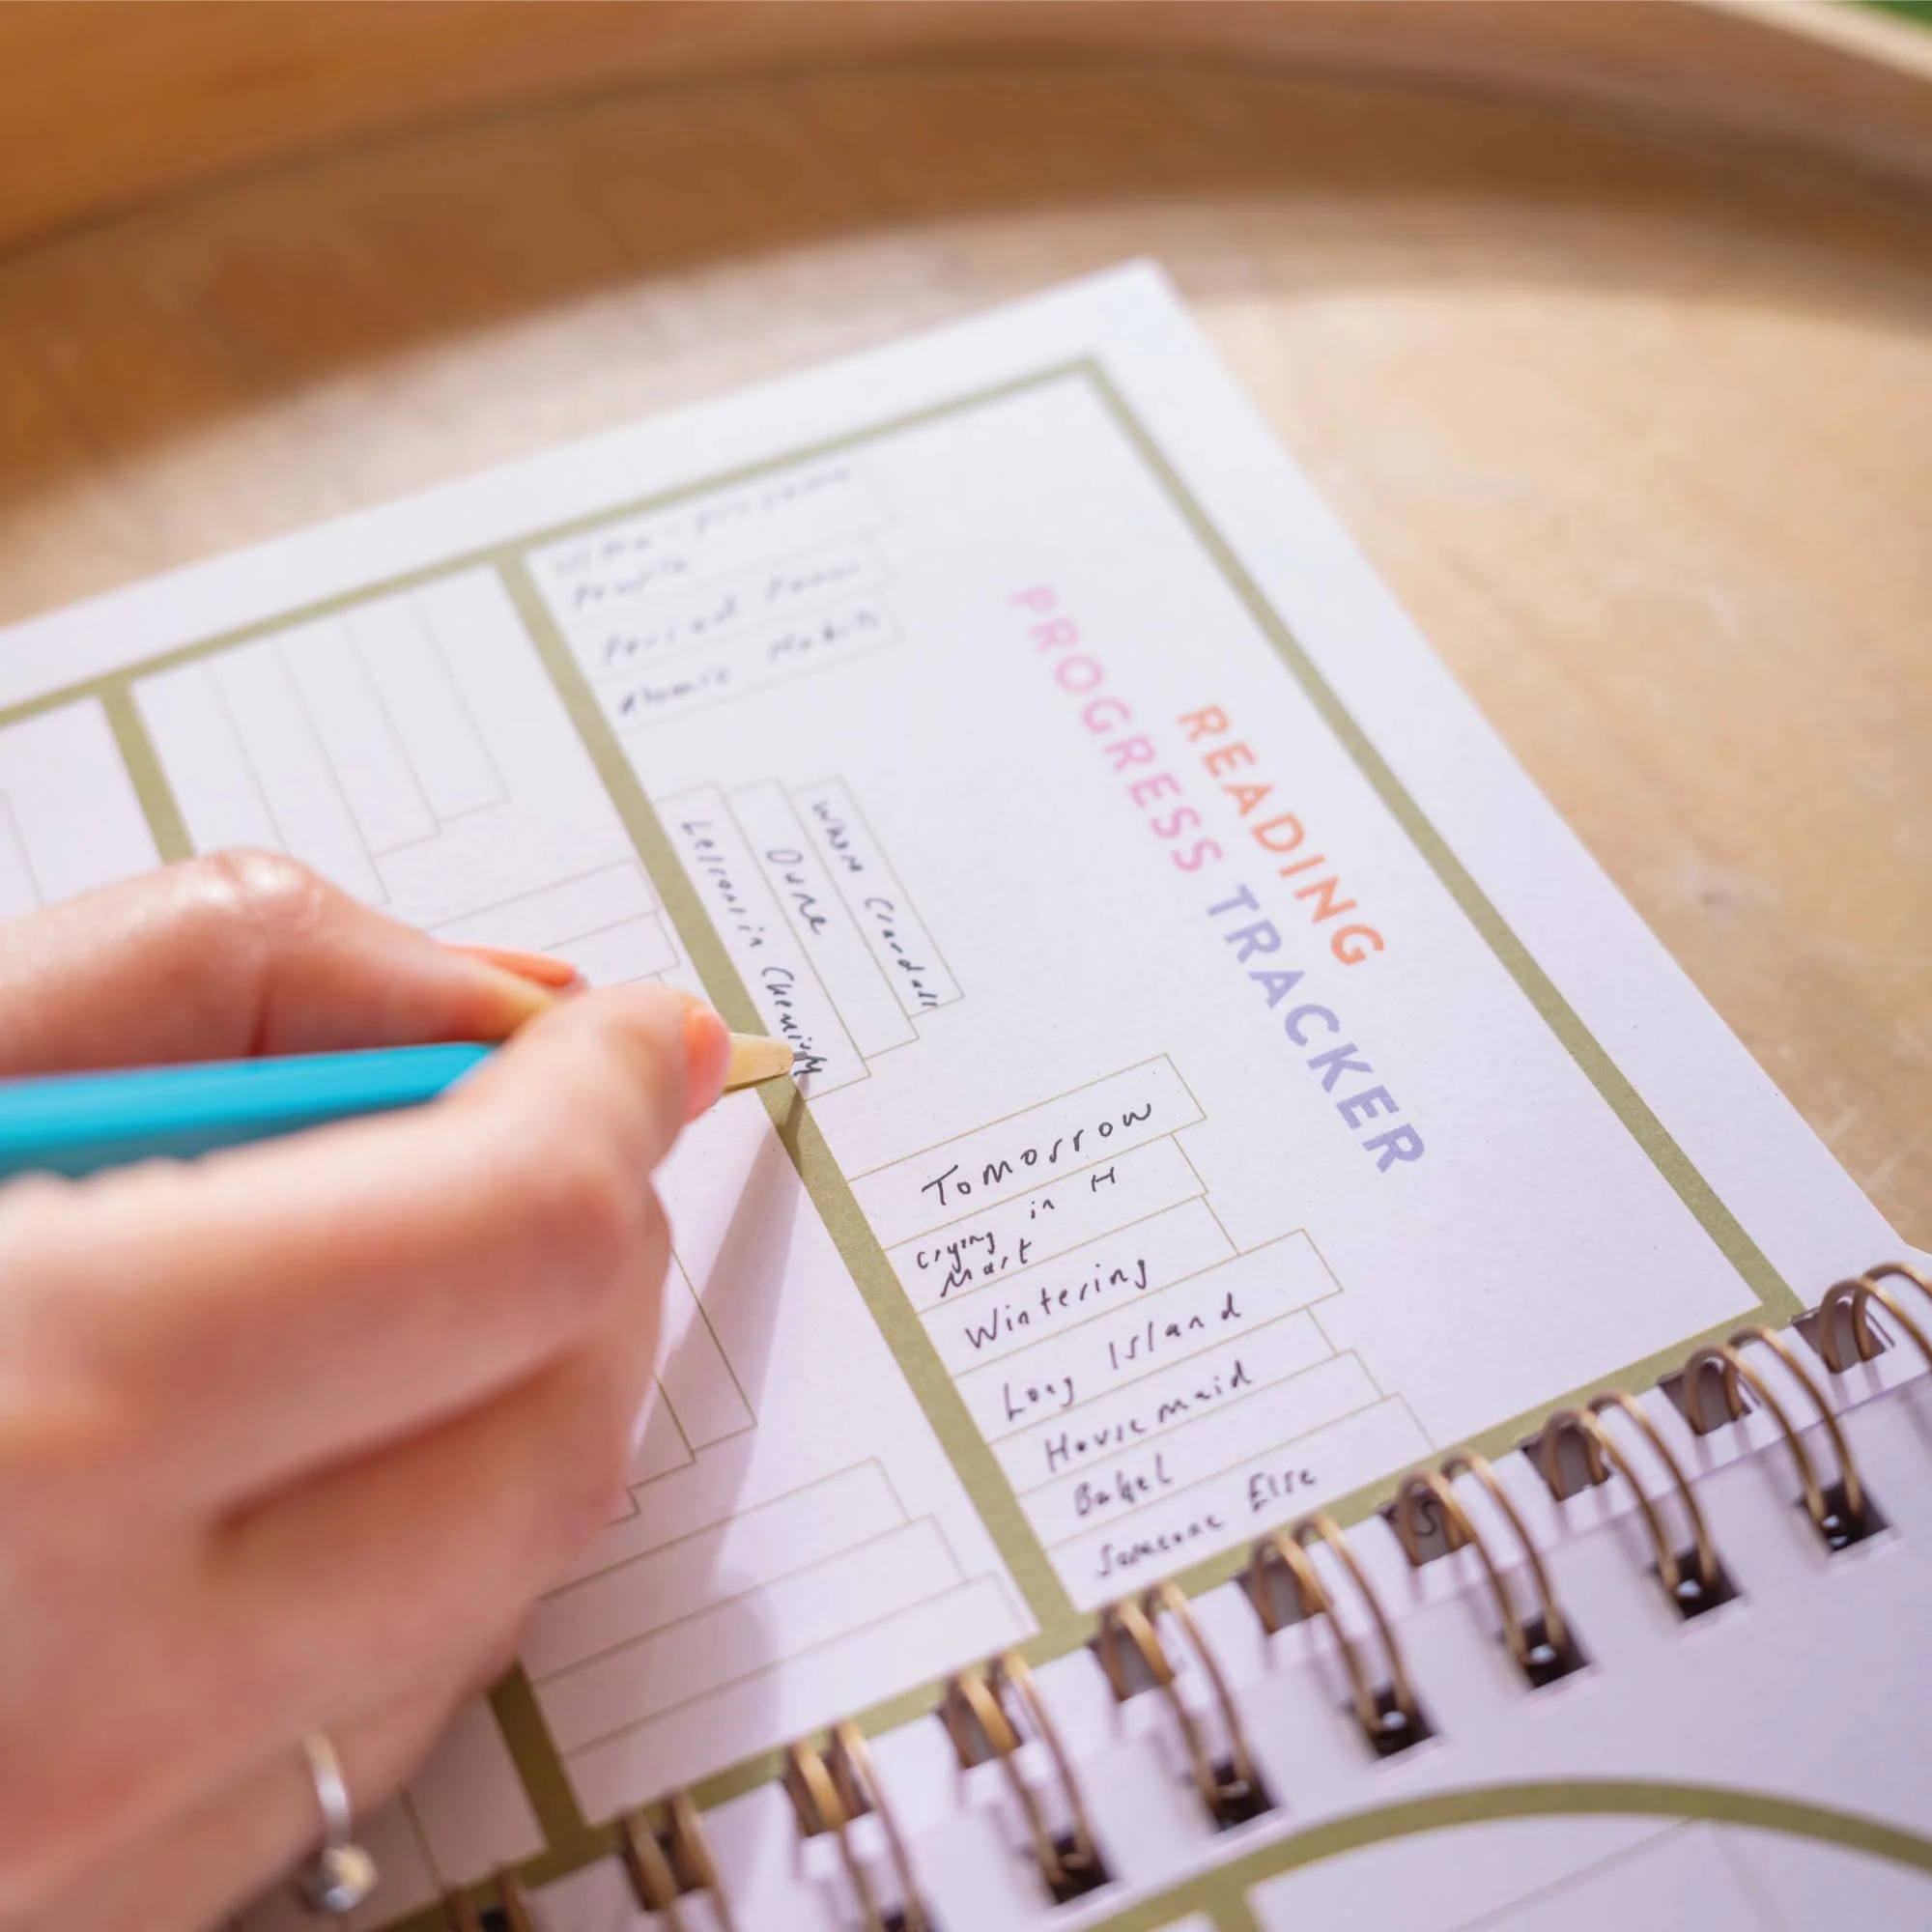 READING
PROGRESS TRACKER
Ultra-processed
People
Period Power
Atomic Habits
Lessons in Chemistry
Dune
Crawdads
Tomorrow
Crying in H
Mart
Wintering
Long Island
Housemaid
Babel
Someone Else